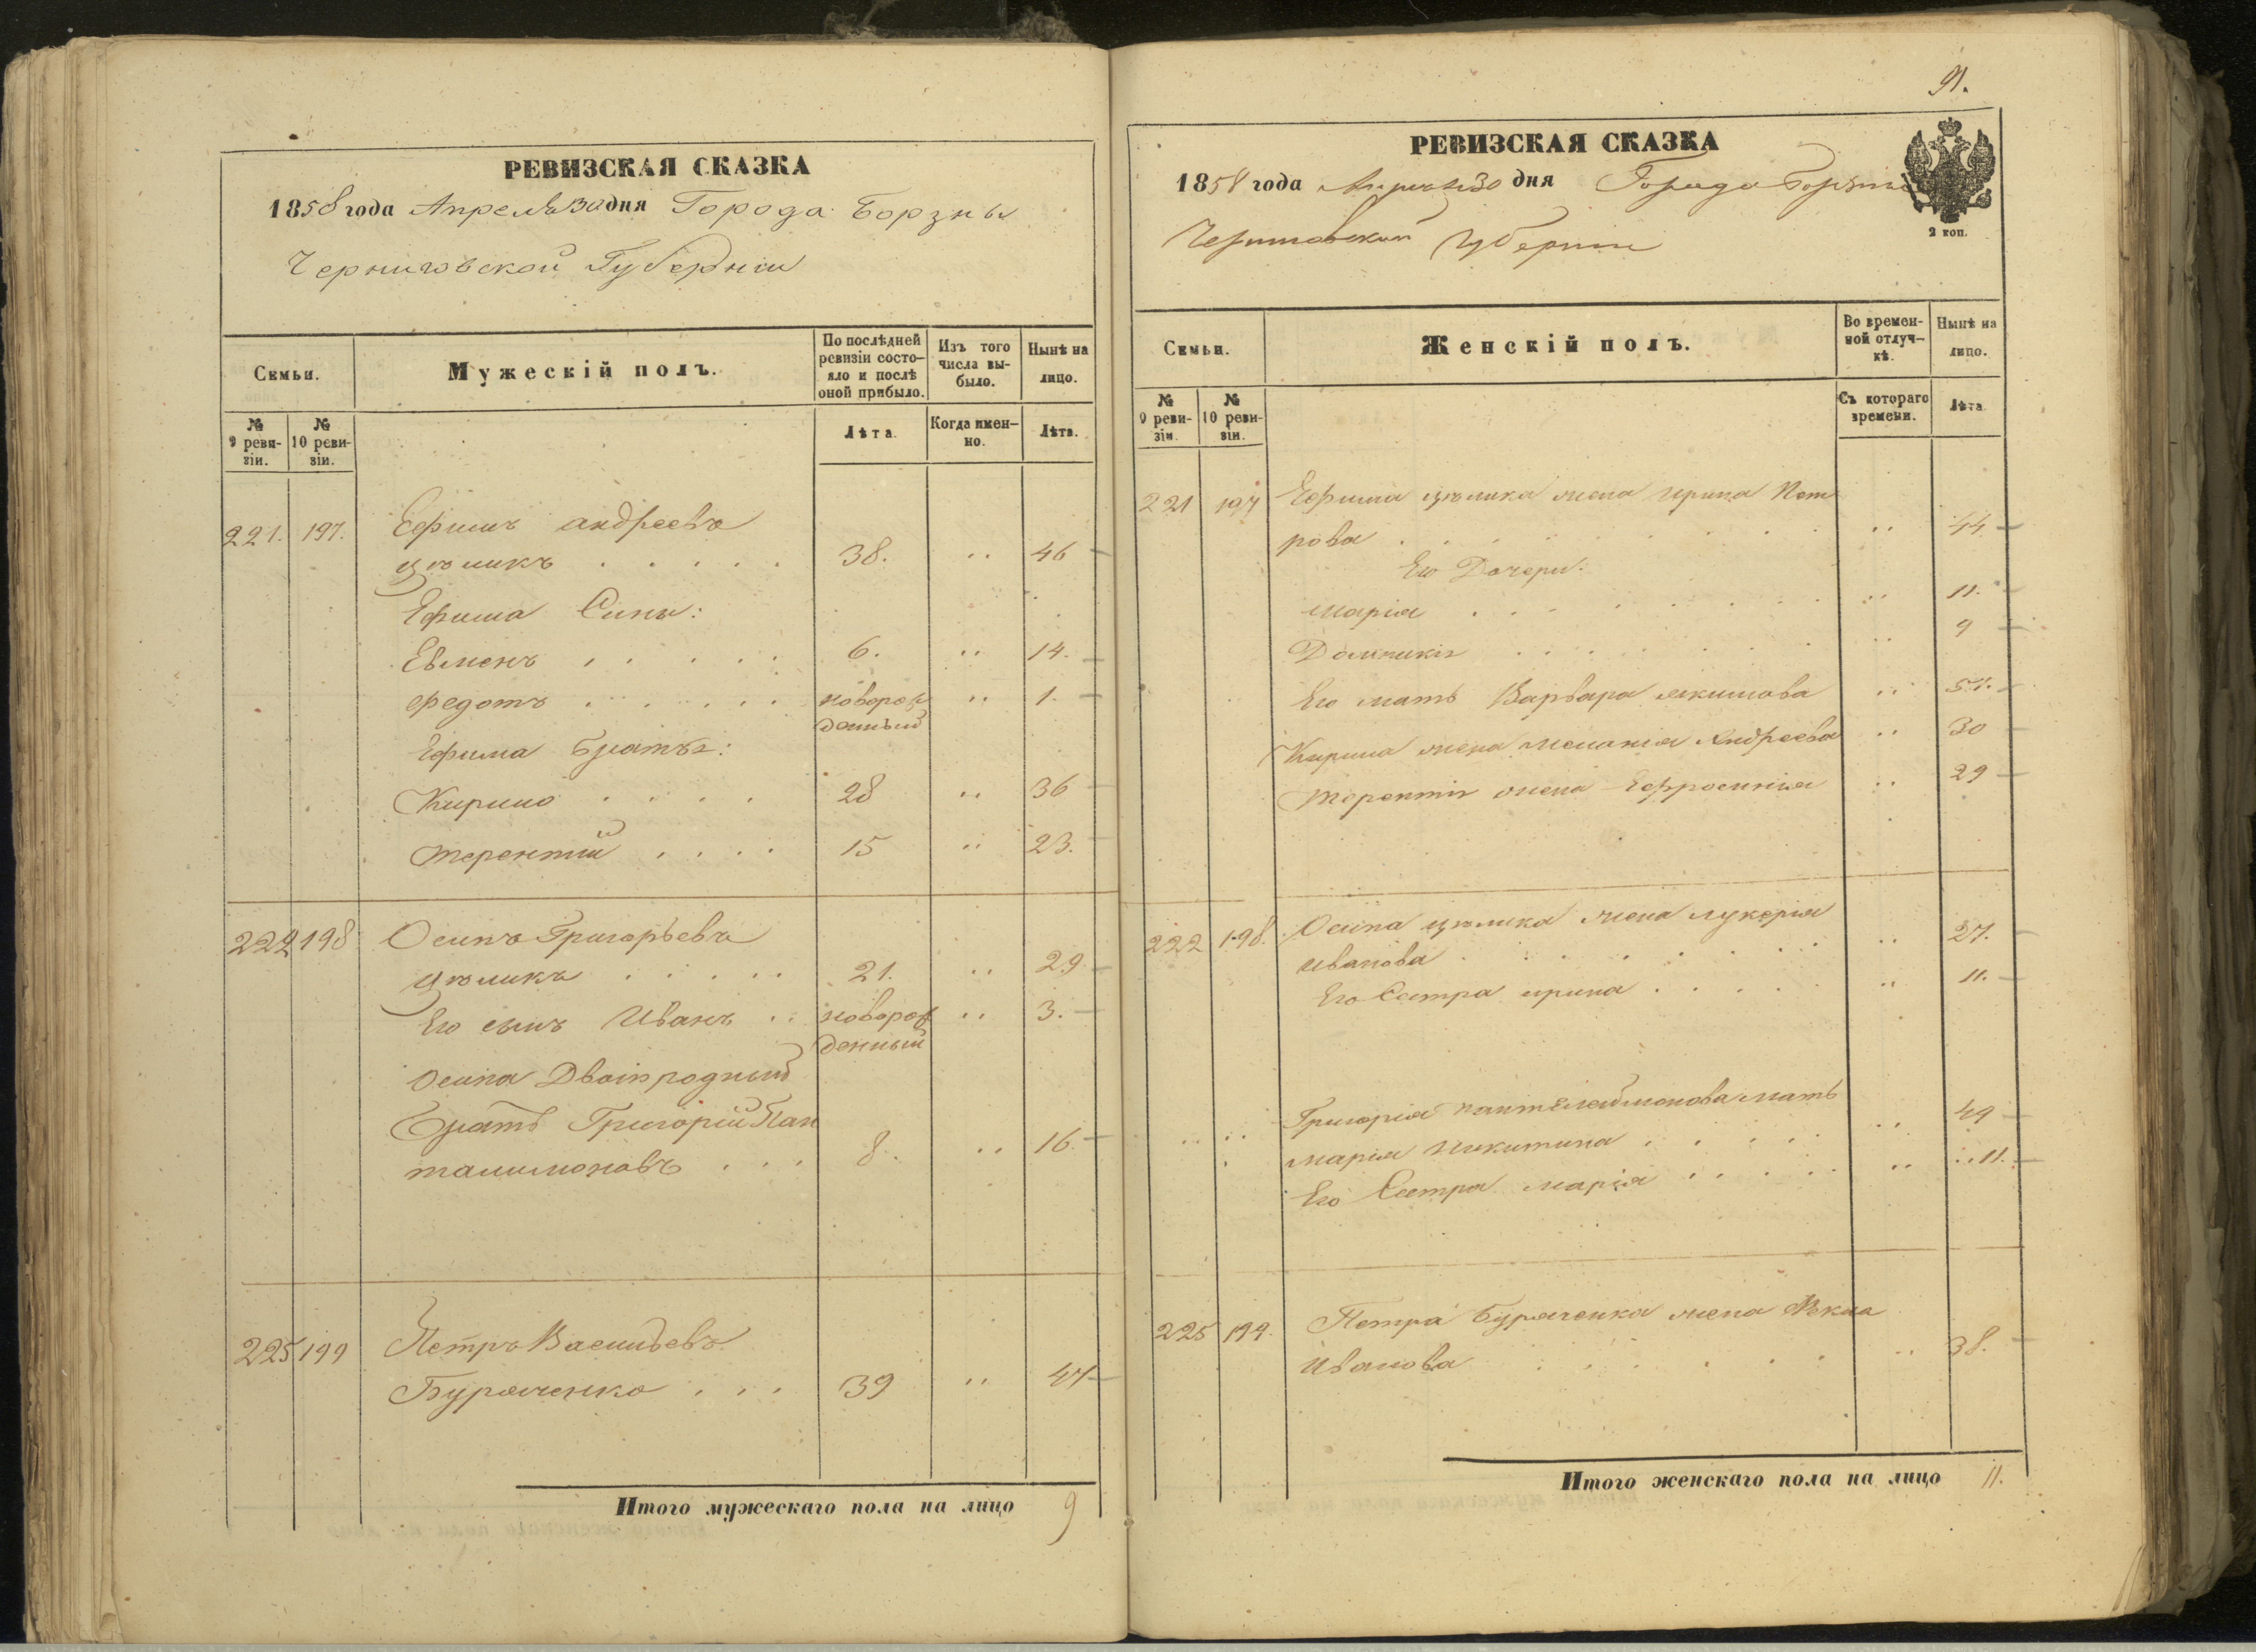 РЕВИЗСКАЯ СКАЗКА
1858 года Апреля 30 дня Города Борзны
Черниговской Губернии
Семьи.
Мужескій полъ.
По послѣдней ревизіи состояло и послѣ оной прибыло.
Изъ того числа выбыло.
Нынѣ на лицо.
№ 9 ревизіи.
№ 10 ревизіи.
Лѣта.
Когда именно.
Лѣта.
221. 197. Ефимъ Андреевъ
Цюликъ . . . . . 38. .. 46
Ефима Сины:
Евменъ . . . . . 6. .. 14.
Федотъ . . . . . новорож .. 1.
денный
Ефима Братья:
Кирило . . . . 28 .. 36
Терентий . . . . 15 .. 23.
222 198 Осипъ Григорьевъ
Цюликъ . . . . . 21. .. 29.
Его сынъ Иванъ .. новорож .. 3.
денный
Осипа Двоюродный
Братъ Григорій Пан
талимоновъ . . . 8. .. 16.
225 199 Петръ Васильевъ
Буряченко . . . 39 .. 47
Итого мужескаго пола на лицо 9
91.
РЕВИЗСКАЯ СКАЗКА
1858 года Апреля 30 дня Города Борзны
Черниговской Губернии
2 коп.
Семьи.
Женскій полъ.
Во временной отлучкѣ.
Нынѣ на лицо.
№ 9 ревизіи.
№ 10 ревизіи.
Съ котораго времени.
Лѣта
221 197 Ефима Цюлика жена Ирина Пет
рова . . . . . . . .. 44.
Его Дочери:
Марія . . . . . . . .. 11.
Домникія . . . . . . .. 9
Его мать Варвара Якимова .. 51.
Кирила жена Меланія Андреева .. 30
Терентія жена Ефросинія .. 29
222 198. Осипа Цюлика жена Лукерія
Иванова . . . . . . . .. 27.
Его Сестра Ирина . . . . . .. 11.
.. .. Григорія Пантелеймонова мать
Марія Никитина . . . . . .. 49
Его Сестра Марія . . . . . .. 11.
225 199. Петра Буряченка жена Фекла
Иванова . . . . . . .. 38.
Итого женскаго пола на лицо 11.